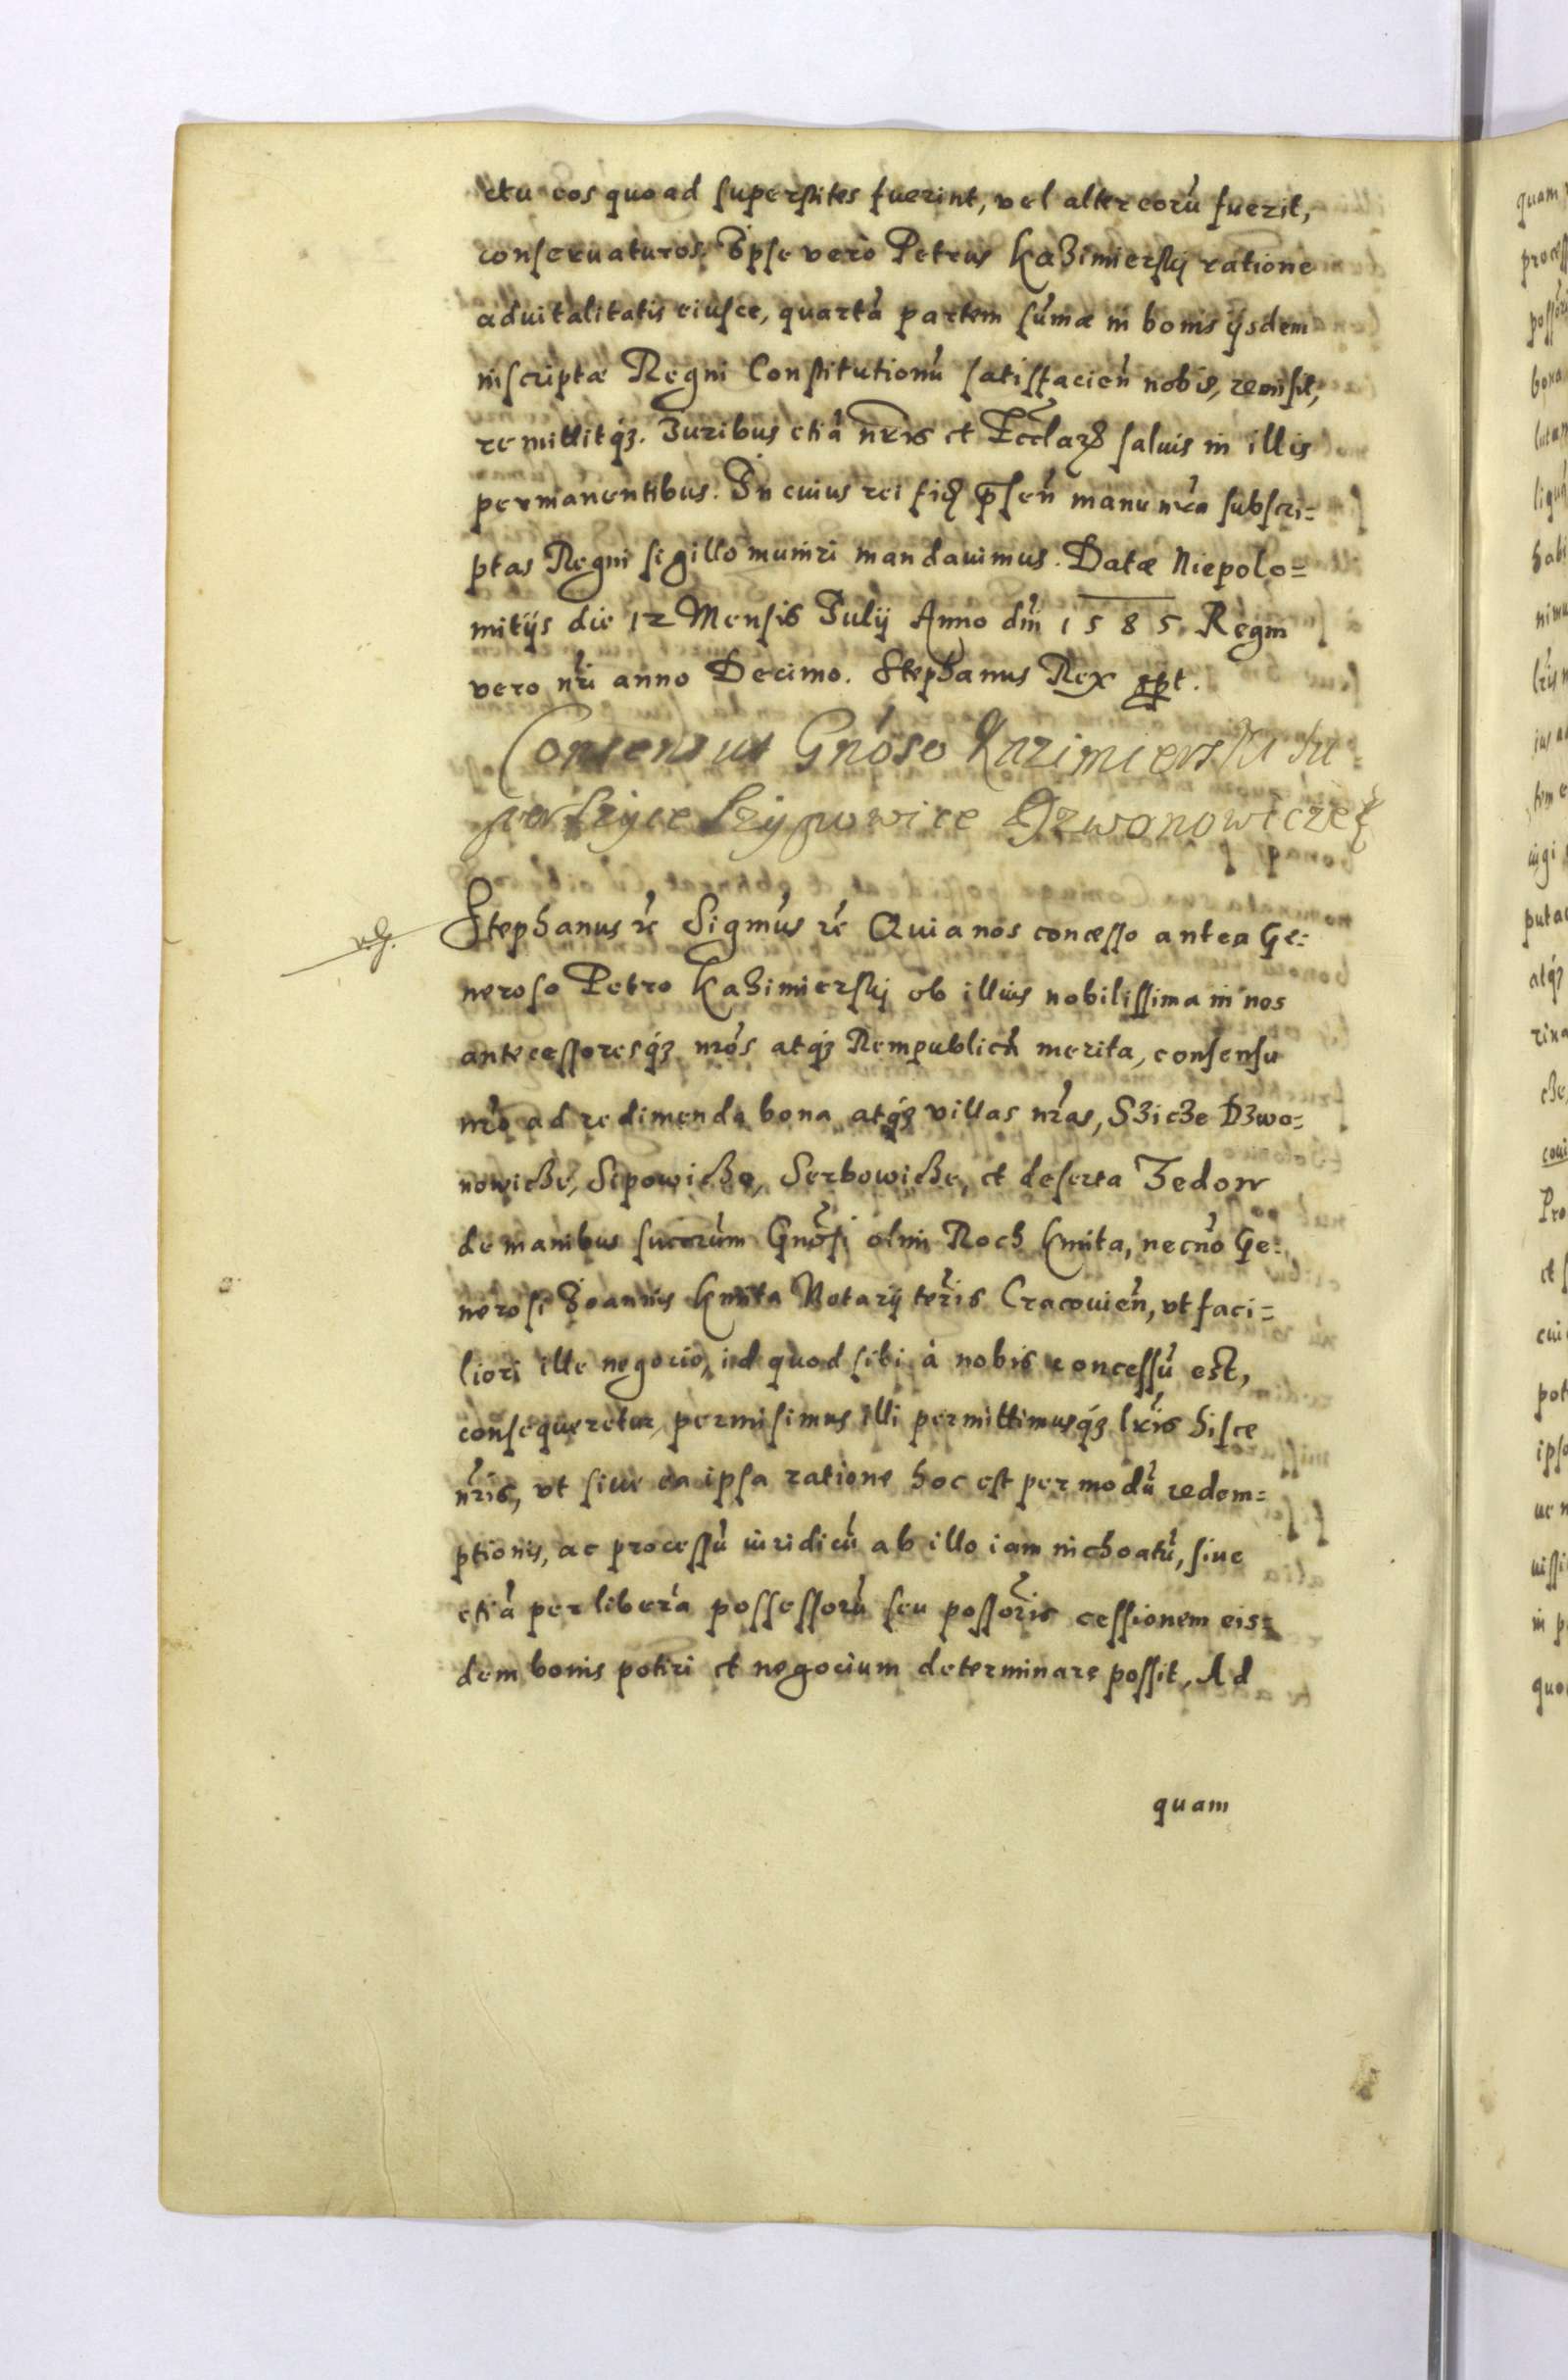 ctu eos quoad superstites fuerint, vel alter eorũ fuerit,
conseruaturos. Ipse vero Petrus Kazimiersky ratione
aduitalitatis eiusce, quartã partem sum̃æ in bonis ijsdem
inscriptæ Regni Constitutionũ satisfacieñ nobis, remisit,
remittitq́ꝫ. Juribus etiã nr̃is et Eccl̃arꝫ saluis in illis
permanentibus. In cuius rei fidꝫ p̃señ manu nr̃a subscri=
ptas Regni sigillo muniri mandauimus. Datæ Niepolo=
mitijs die 12 Mensis Julij Anno dñi 1585. Regni
vero nr̃i anno Decimo. Stephanus Rex sspt.
Consensus Gnõso Kazimierski su=
per Szyce Szypowice Dzwonowicze &
Stephanus &c Sigmũs &c Quia nos concesso antea Ge=
neroso Petro Kazimiersky ob illius nobilissima in nos
antecessoresq́ꝫ nr̃os atq́ꝫ Rempublicã merita, consensu
nr̃o ad redimenda bona atq́ꝫ villas nr̃as, Szicze Dzwo=
nowicze, Sipowicze, Serbowicze, et deserta Zedow
de manibus succorũm Gnõsi olim Roch Kmita, necño Ge=
nerosi Joannis Kmita Notarij ter̃ris Cracouieñ, vt faci=
liori ille negocio, id quod sibi à nobis concessũ est,
consequeretur, permisimus illi permittimusq́ꝫ lr̃is hisce
nr̃is, vt siue ea ipsa ratione hoc est per modũ redem=
ptionis, ac processũ iuridicũ ab illo iam inchoatũ, siue
etiã per liberã possessorũ seu possor̃is cessionem eis=
dem bonis potiri et negocium determinare possit, Ad
quam